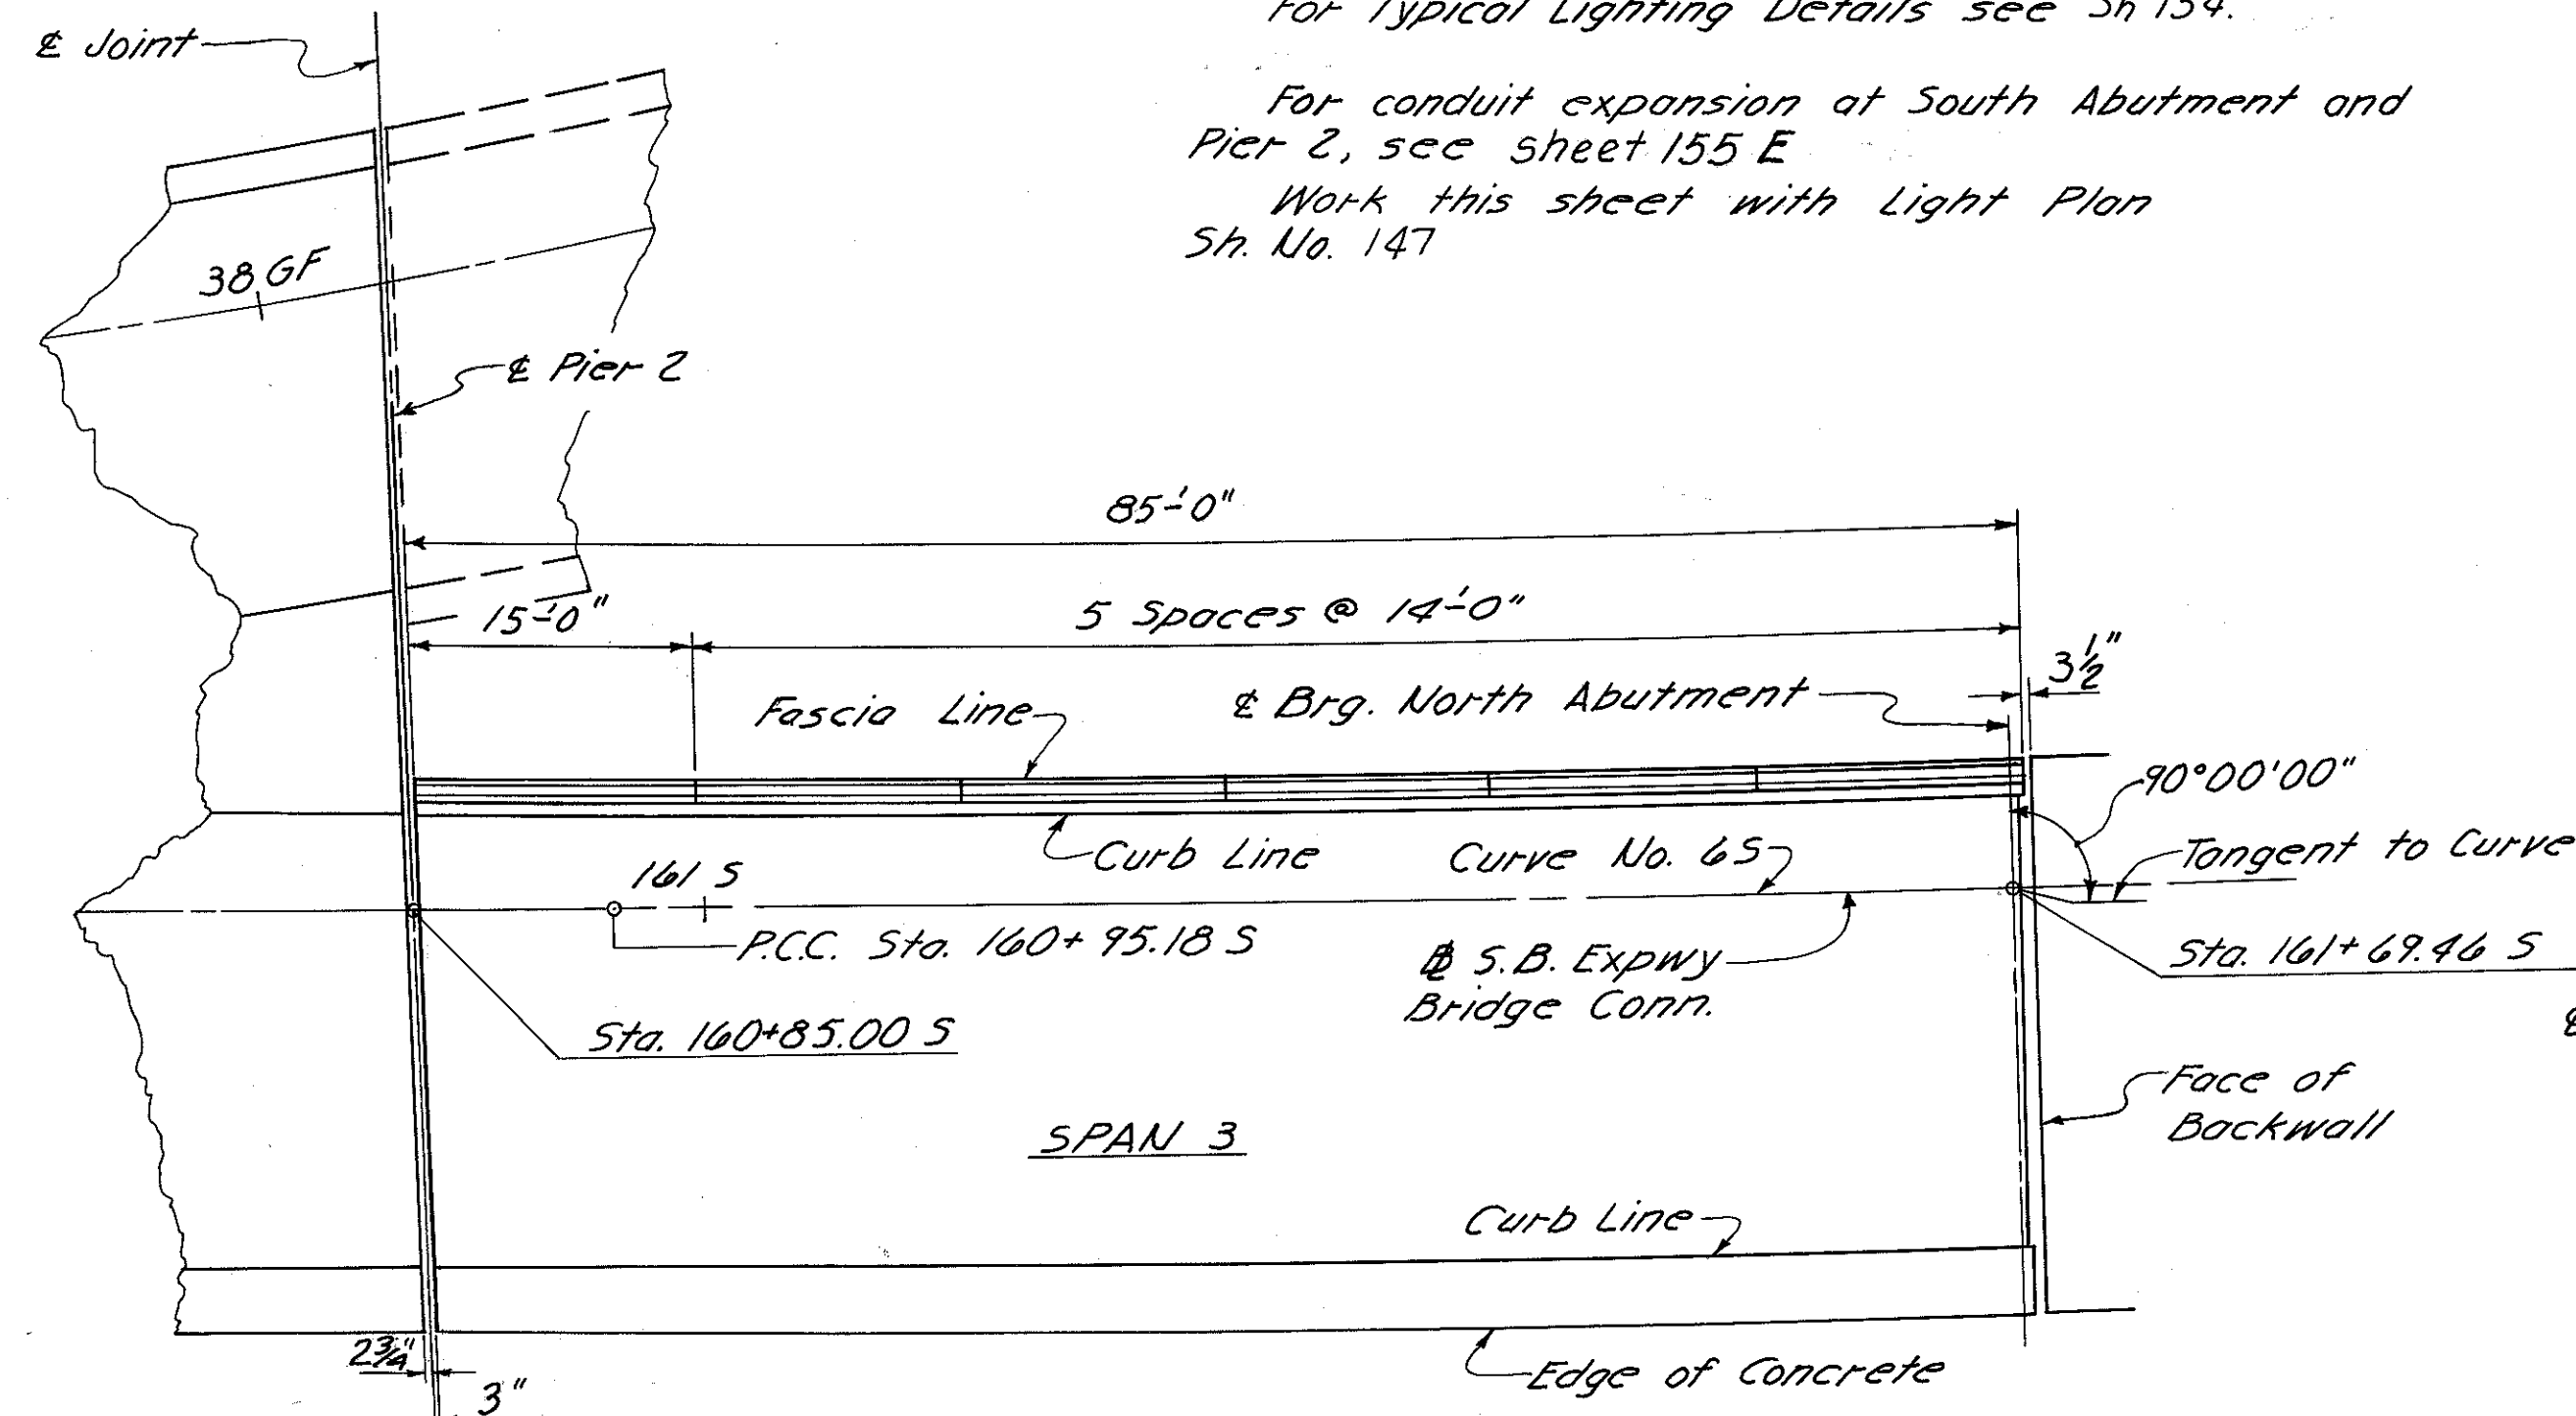 For Typical Lighting Details see Sh 154.
℄ Joint
For conduit expansion at South Abutment and
Pier 2, see sheet 155 E
Work this sheet with Light Plan
Sh. No. 147
38 GF
℄ Pier 2
85'-0"
15'-0"
5 Spaces @ 14'-0"
3 1/2"
Fascia Line
℄ Brg. North Abutment
90°00'00"
Curb Line
Curve No. 6S
Tangent to Curve
161 S
P.C.C. Sta. 160+95.18 S
S.B. Expwy
Bridge Conn.
Sta. 161+69.46 S
Sta. 160+85.00 S
℄
Face of
Backwall
SPAN 3
Curb Line
2 3/4"
3"
Edge of Concrete